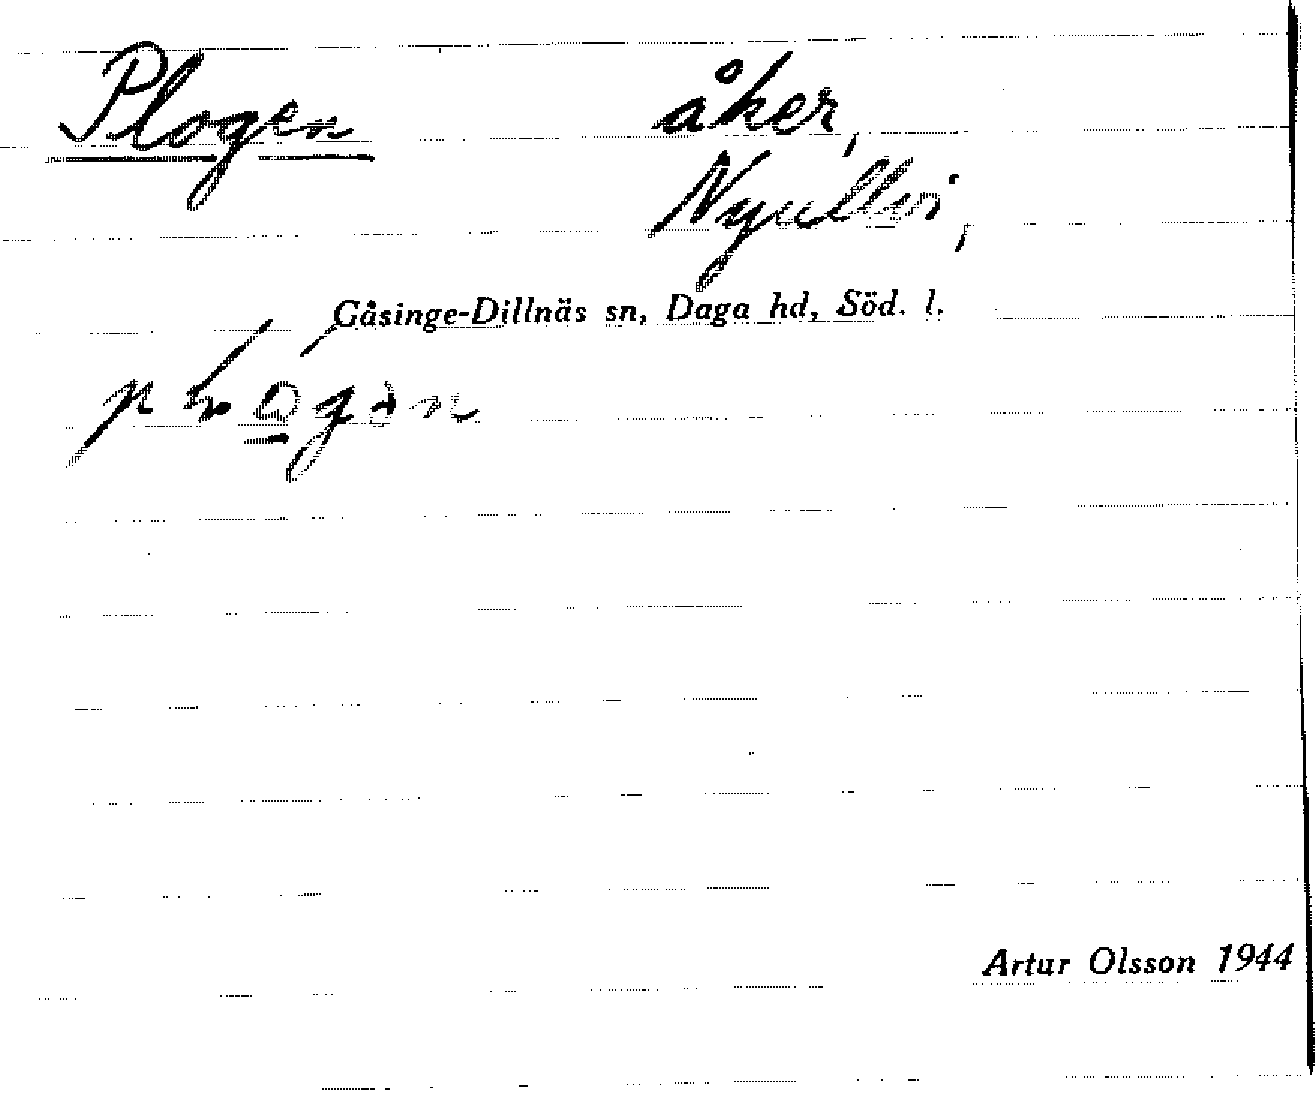 Plogen
åker,
Nyullvi,
Gåsinge-Dillnäs sn, Daga hd, Söd. l.
Artur Olsson 1944